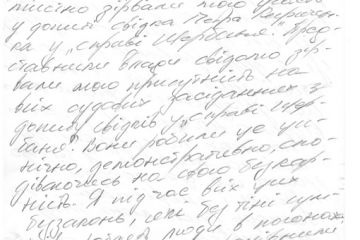 мисно зірвали мою участь
у допиті свідка Петра
ка у „справі Щербаня". Пред-
ставники влади свідомо зір-
вали мою присутність на
всіх судових засіданнях з
допиту свідків у „справі Щер-
баня". Вони робили це ци-
нічно, демонстративно, спо-
діваючись на свою безкар-
ність. Я під час всіх цих
беззаконь, які без тіні
люди в погонах,